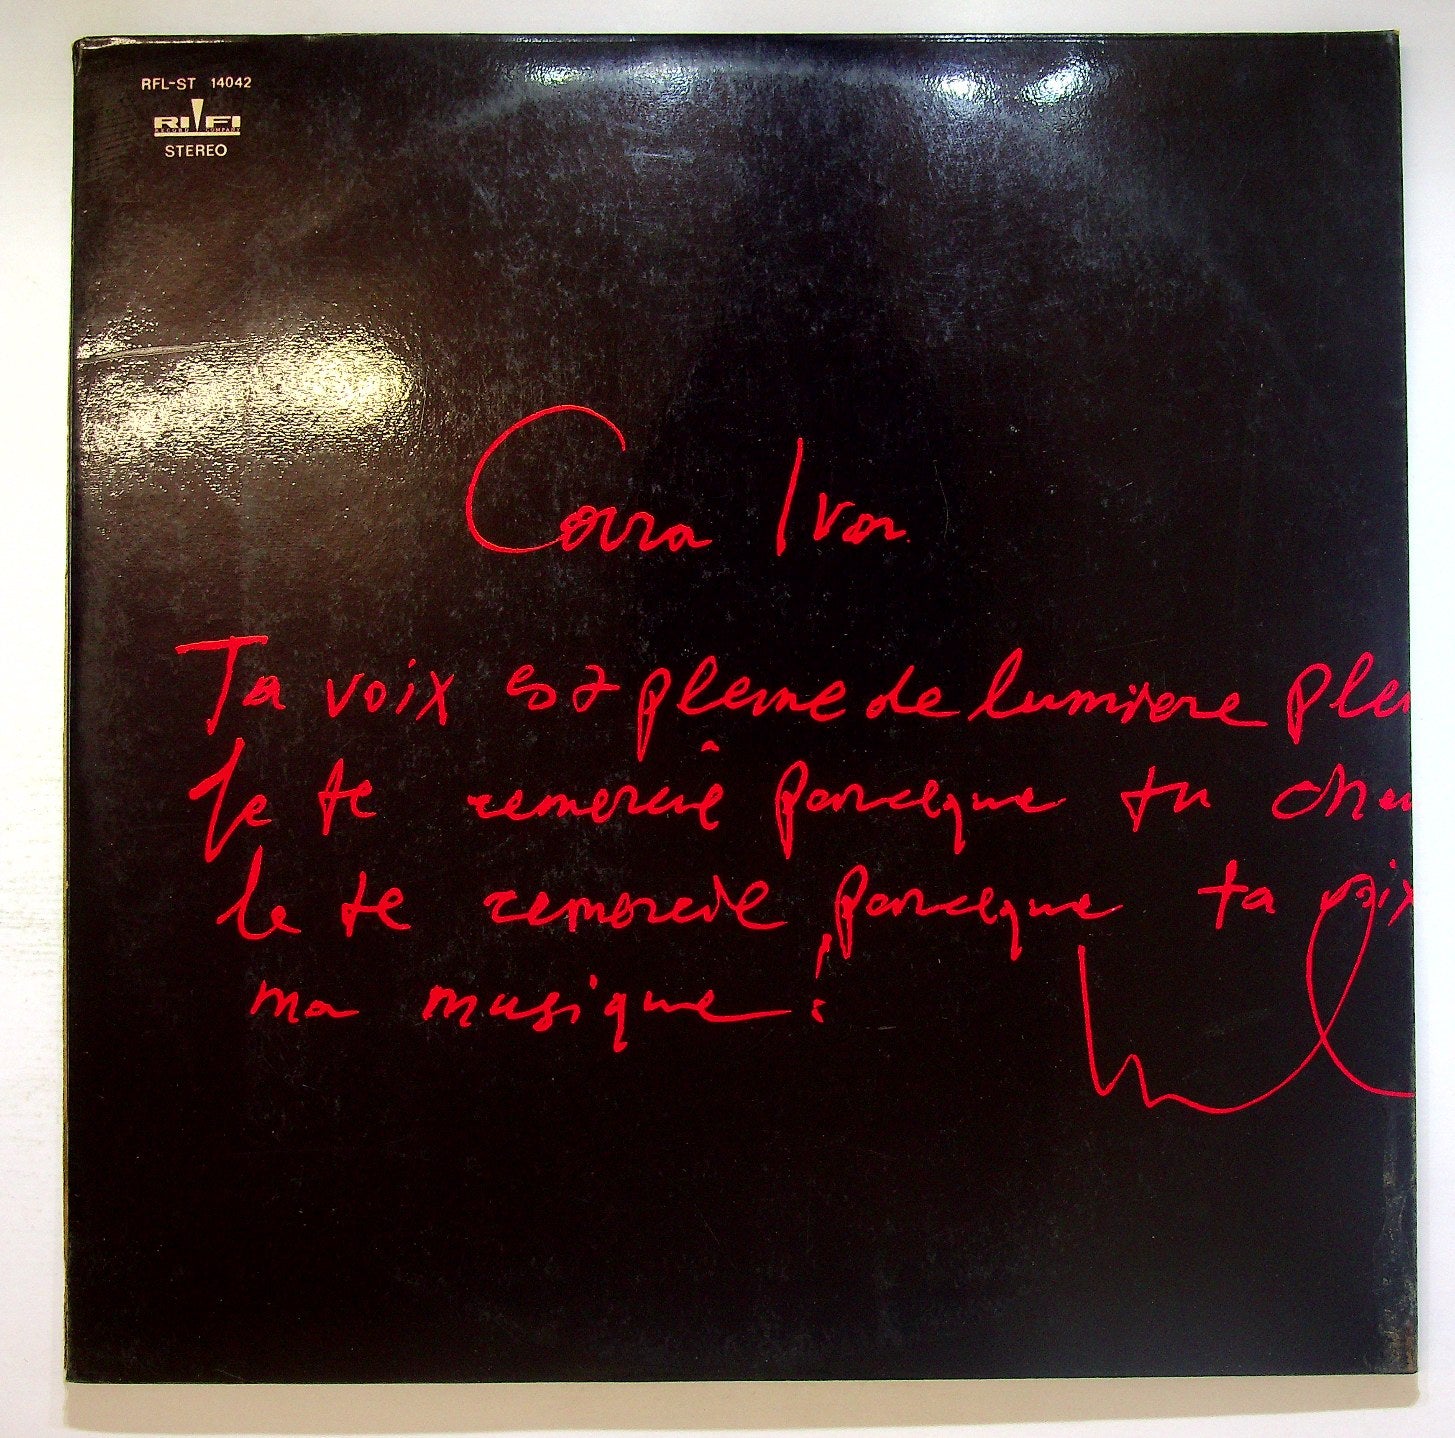 RFL-ST 14042
RI FI
RECORD COMPANY
STEREO
Cara Iva
Ta voix est pleine de lumiere plei
Je te remercie parceque tu chan
Je te remercie parceque ta voix
ma musique!